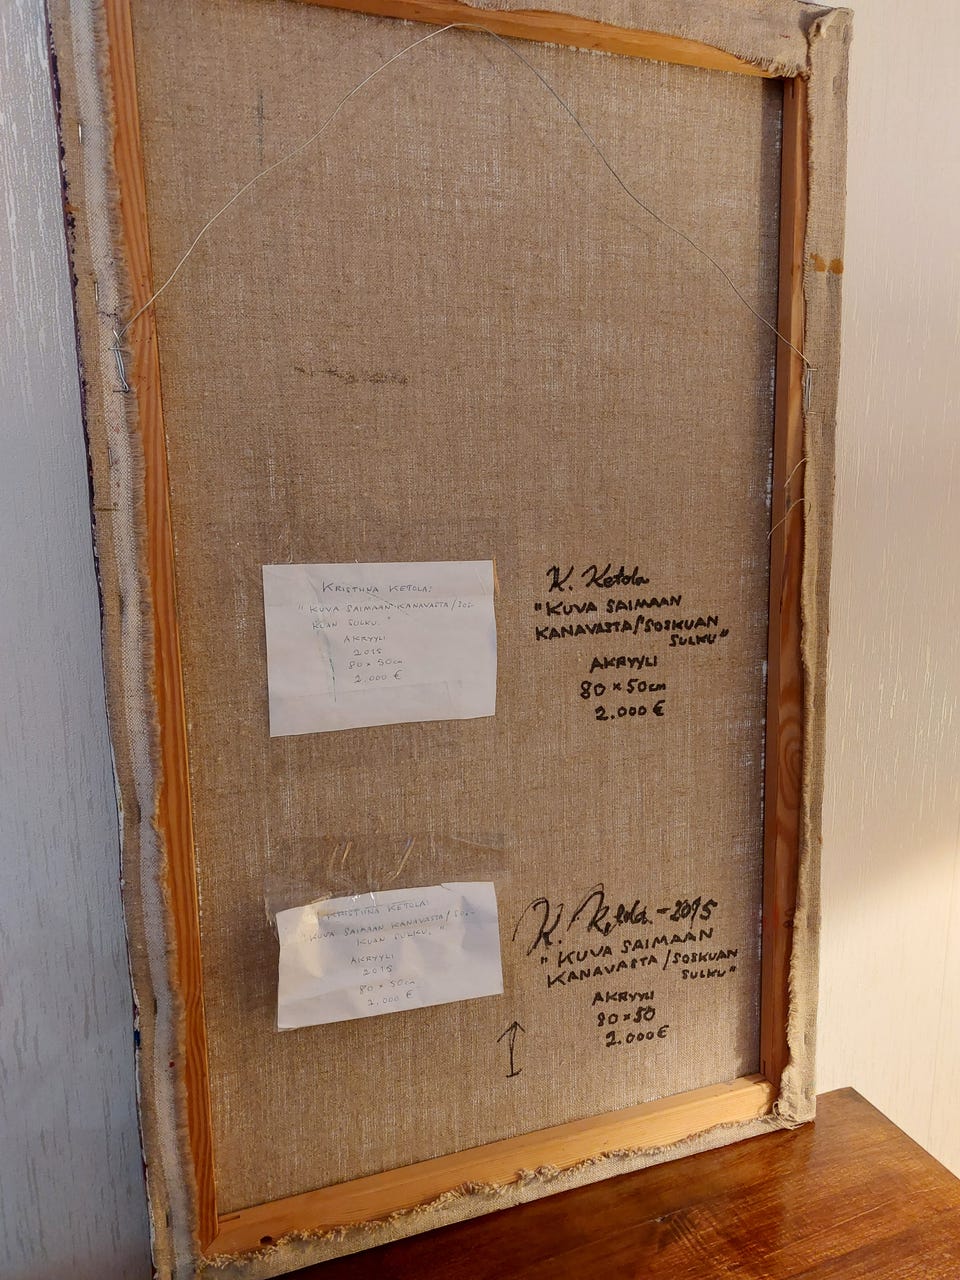 KRISTIINA KETOLA:
"KUVA SAIMAAN KANAVASTA/SOS-
KUAN SULKU."
AKRYYLI
2015
80 x 50cm
2.000 €
K. Ketola
"KUVA SAIMAAN
KANAVASTA/SOSKUAN
SULKU"
AKRYYLI
80 x 50cm
2.000 €
KRISTIINA KETOLA:
"KUVA SAIMAAN KANAVASTA/SOS-
KUAN SULKU."
AKRYYLI
2015
80 x 50cm
2.000 €
K. Ketola - 2015
"KUVA SAIMAAN
KANAVASTA/SOSKUAN
SULKU"
AKRYYLI
80 x 50
2.000 €